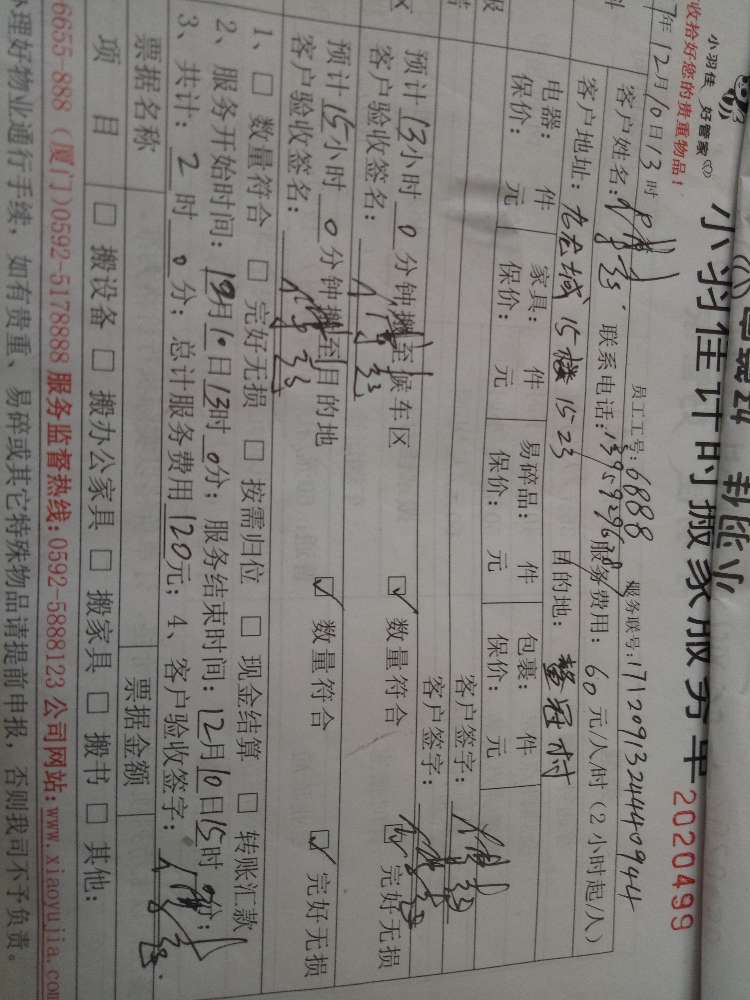 小羽佳 好管家
收拾好您的贵重物品！
小羽佳计时搬家服务单 2020499
年12月10日13时 员工工号：6888 服务联号：1712091324440944
客户姓名： 联系电话： 服务费用：60元/人/时（2小时起/人）
客户地址：九龙城15楼1523 目的地：
电器： 件 家具： 件 易碎品： 件 包裹： 件
保价： 元 保价： 元 保价： 元 保价： 元
客户签字：
客户签字：
预计13小时0分钟搬至候车区 ☑ 数量符合 ☑ 完好无损
客户验收签名：
预计15小时0分钟搬至目的地 ☑ 数量符合 ☑ 完好无损
客户验收签名：
1、□ 数量符合 □ 完好无损 □ 按需归位 □ 现金结算 □ 转账汇款
2、服务开始时间：12月10日13时0分；服务结束时间：12月10日15时0分；
3、共计：2时0分；总计服务费用120元；4、客户验收签字：
票据名称 票据金额
项目 □ 搬设备 □ 搬办公家具 □ 搬家具 □ 搬书 □ 其他：
6655-888（厦门）0592-5178888 服务监督热线：0592-5888123 公司网站：www.xiaoyujia.com
办理好物业通行手续，如有贵重、易碎或其它特殊物品请提前申报，否则我司不予负责。